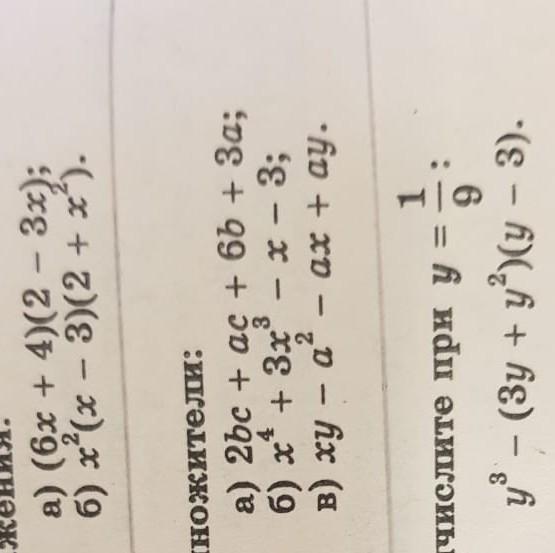 жения.
а) (6x + 4)(2 − 3x);
б) x²(x − 3)(2 + x²).
ножители:
а) 2bc + ac + 6b + 3a;
б) x⁴ + 3x³ − x − 3;
в) xy − a² − ax + ay.
числите при y = 1/9 :
y³ − (3y + y²)(y − 3).